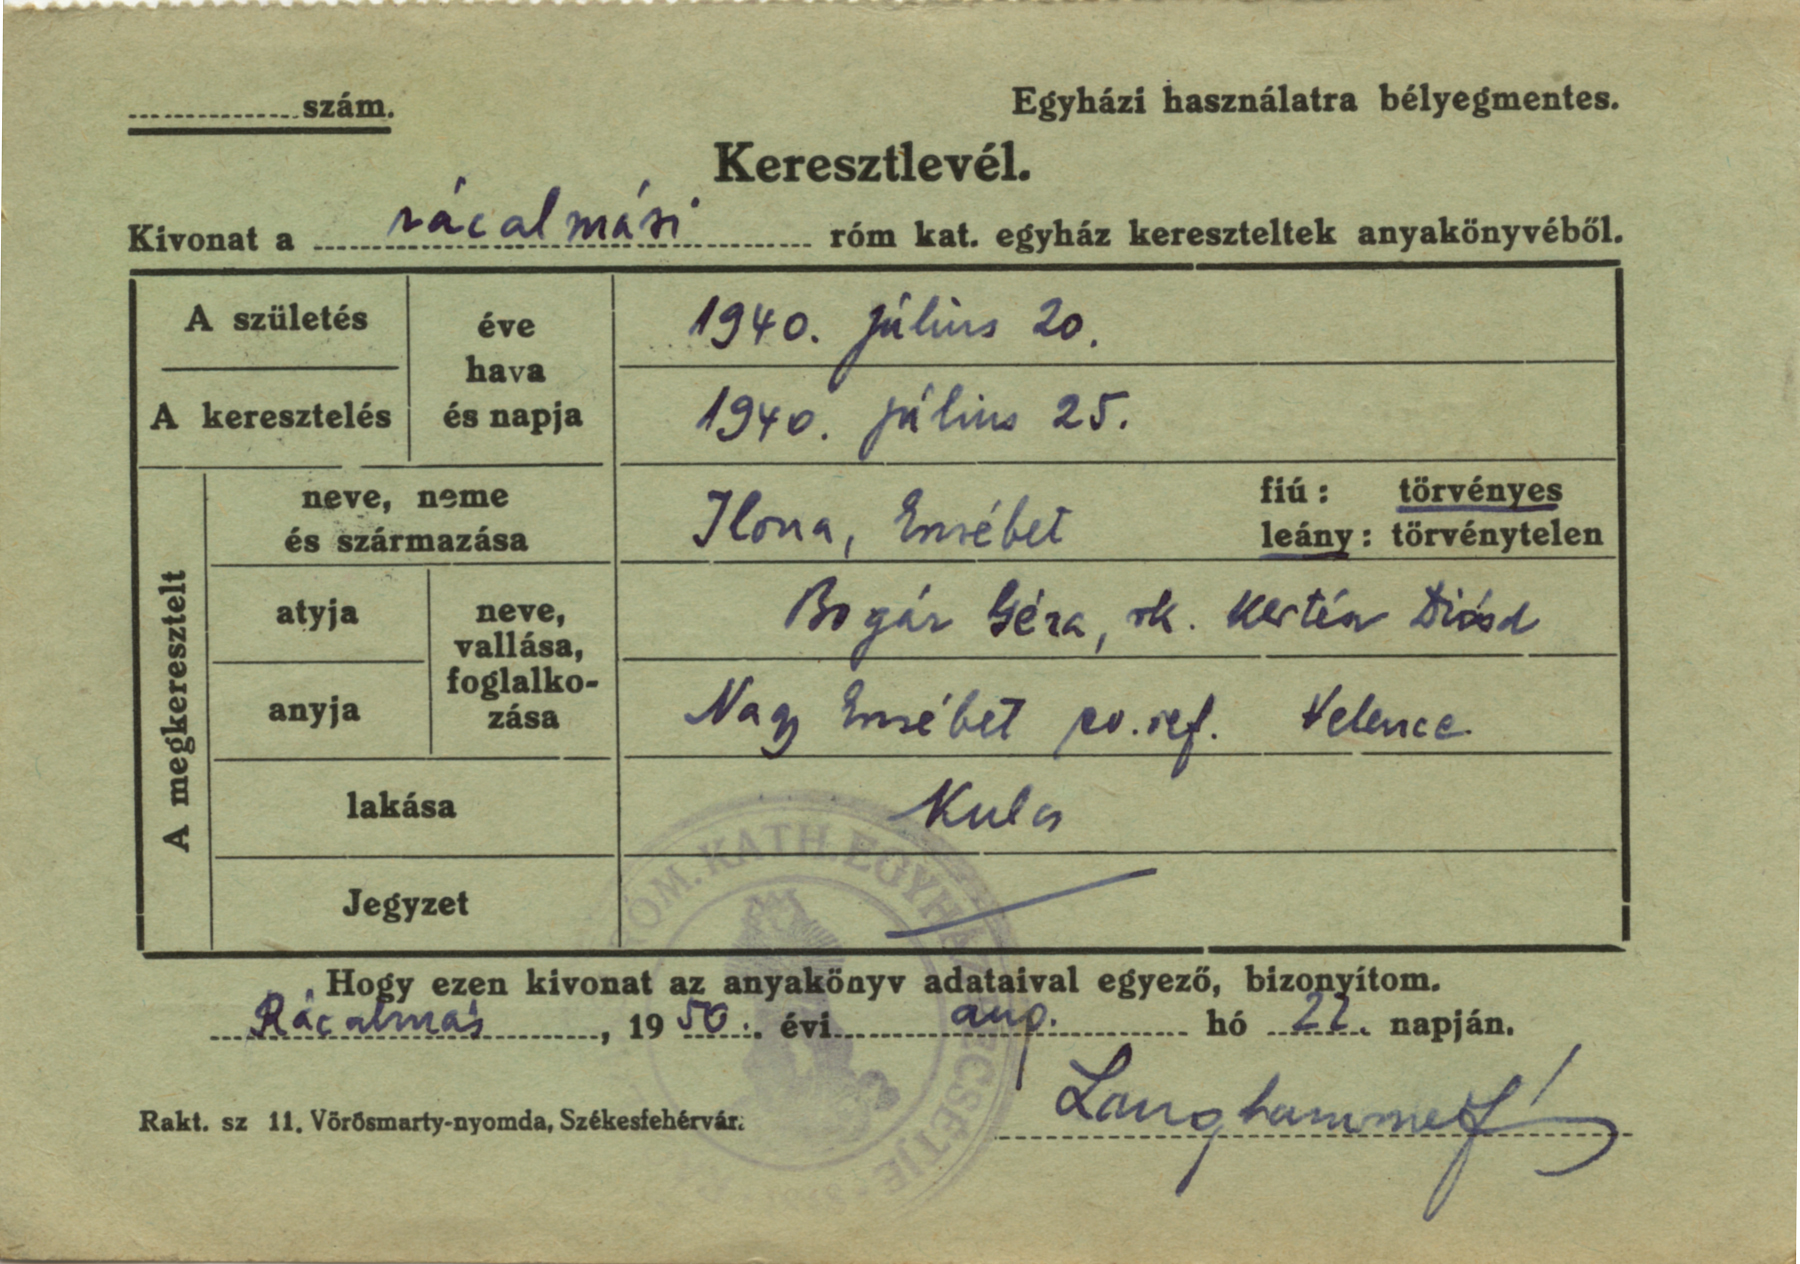 szám.
Egyházi használatra bélyegmentes.
Keresztlevél.
Kivonat a rácalmási róm kat. egyház kereszteltek anyakönyvéből.
A születés
éve
hava
és napja
1940. július 20.
A keresztelés
1940. július 25.
A megkeresztelt
neve, neme
és származása
Ilona, Erzsébet
fiú: törvényes
leány: törvénytelen
atyja
neve,
vallása,
foglalko-
zása
Bogár Géza, rk. kertész Diósd
anyja
Nagy Erzsébet ev. ref. Velence
lakása
Kulcs
Jegyzet
RÓM. KATH. EGYHÁZ PECSÉTJE
Hogy ezen kivonat az anyakönyv adataival egyező, bizonyítom.
Rácalmás, 1950. évi aug. hó 22. napján.
Langhammer
Rakt. sz 11. Vörösmarty-nyomda, Székesfehérvár.